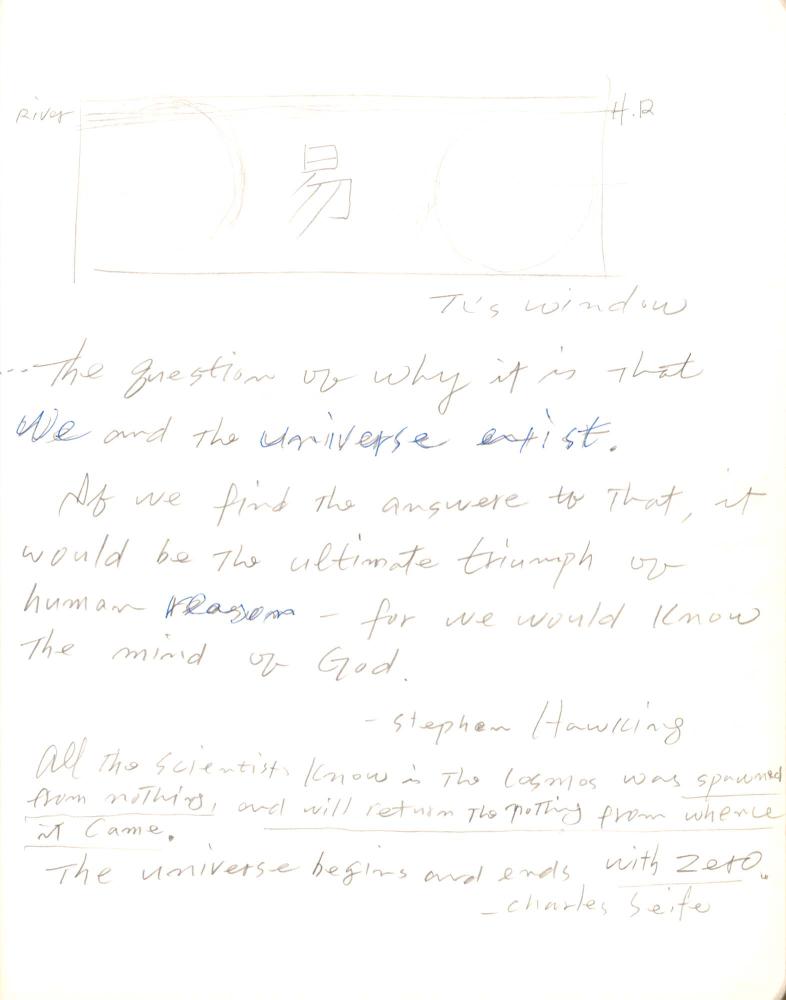 River
H.R
易
Ti's window
...The question of why it is that
We and the universe exist.
If we find the answere to that, it
would be the ultimate triumph of
human reason - for we would know
the mind of God.
- Stephen Hawking
All the scientists know is the cosmos was spawned
from nothing, and will return the nothing from whence
it came.
The universe begins and ends with zero.
- Charles Seife